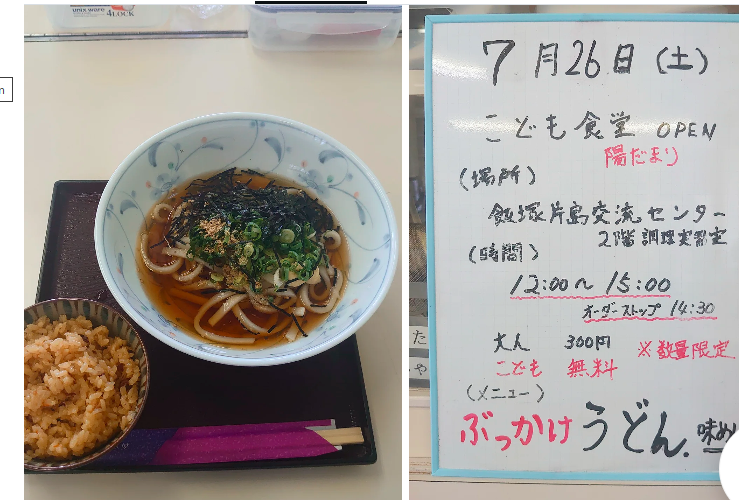 unix ware
4LOCK
n
7月26日(土)
こども食堂 OPEN
陽だまり
(場所)
飯塚片島交流センター
2階 調理実習室
(時間)
12:00～15:00
オーダーストップ 14:30
大人 300円
※数量限定
こども 無料
(メニュー)
ぶっかけうどん.味め
た
や